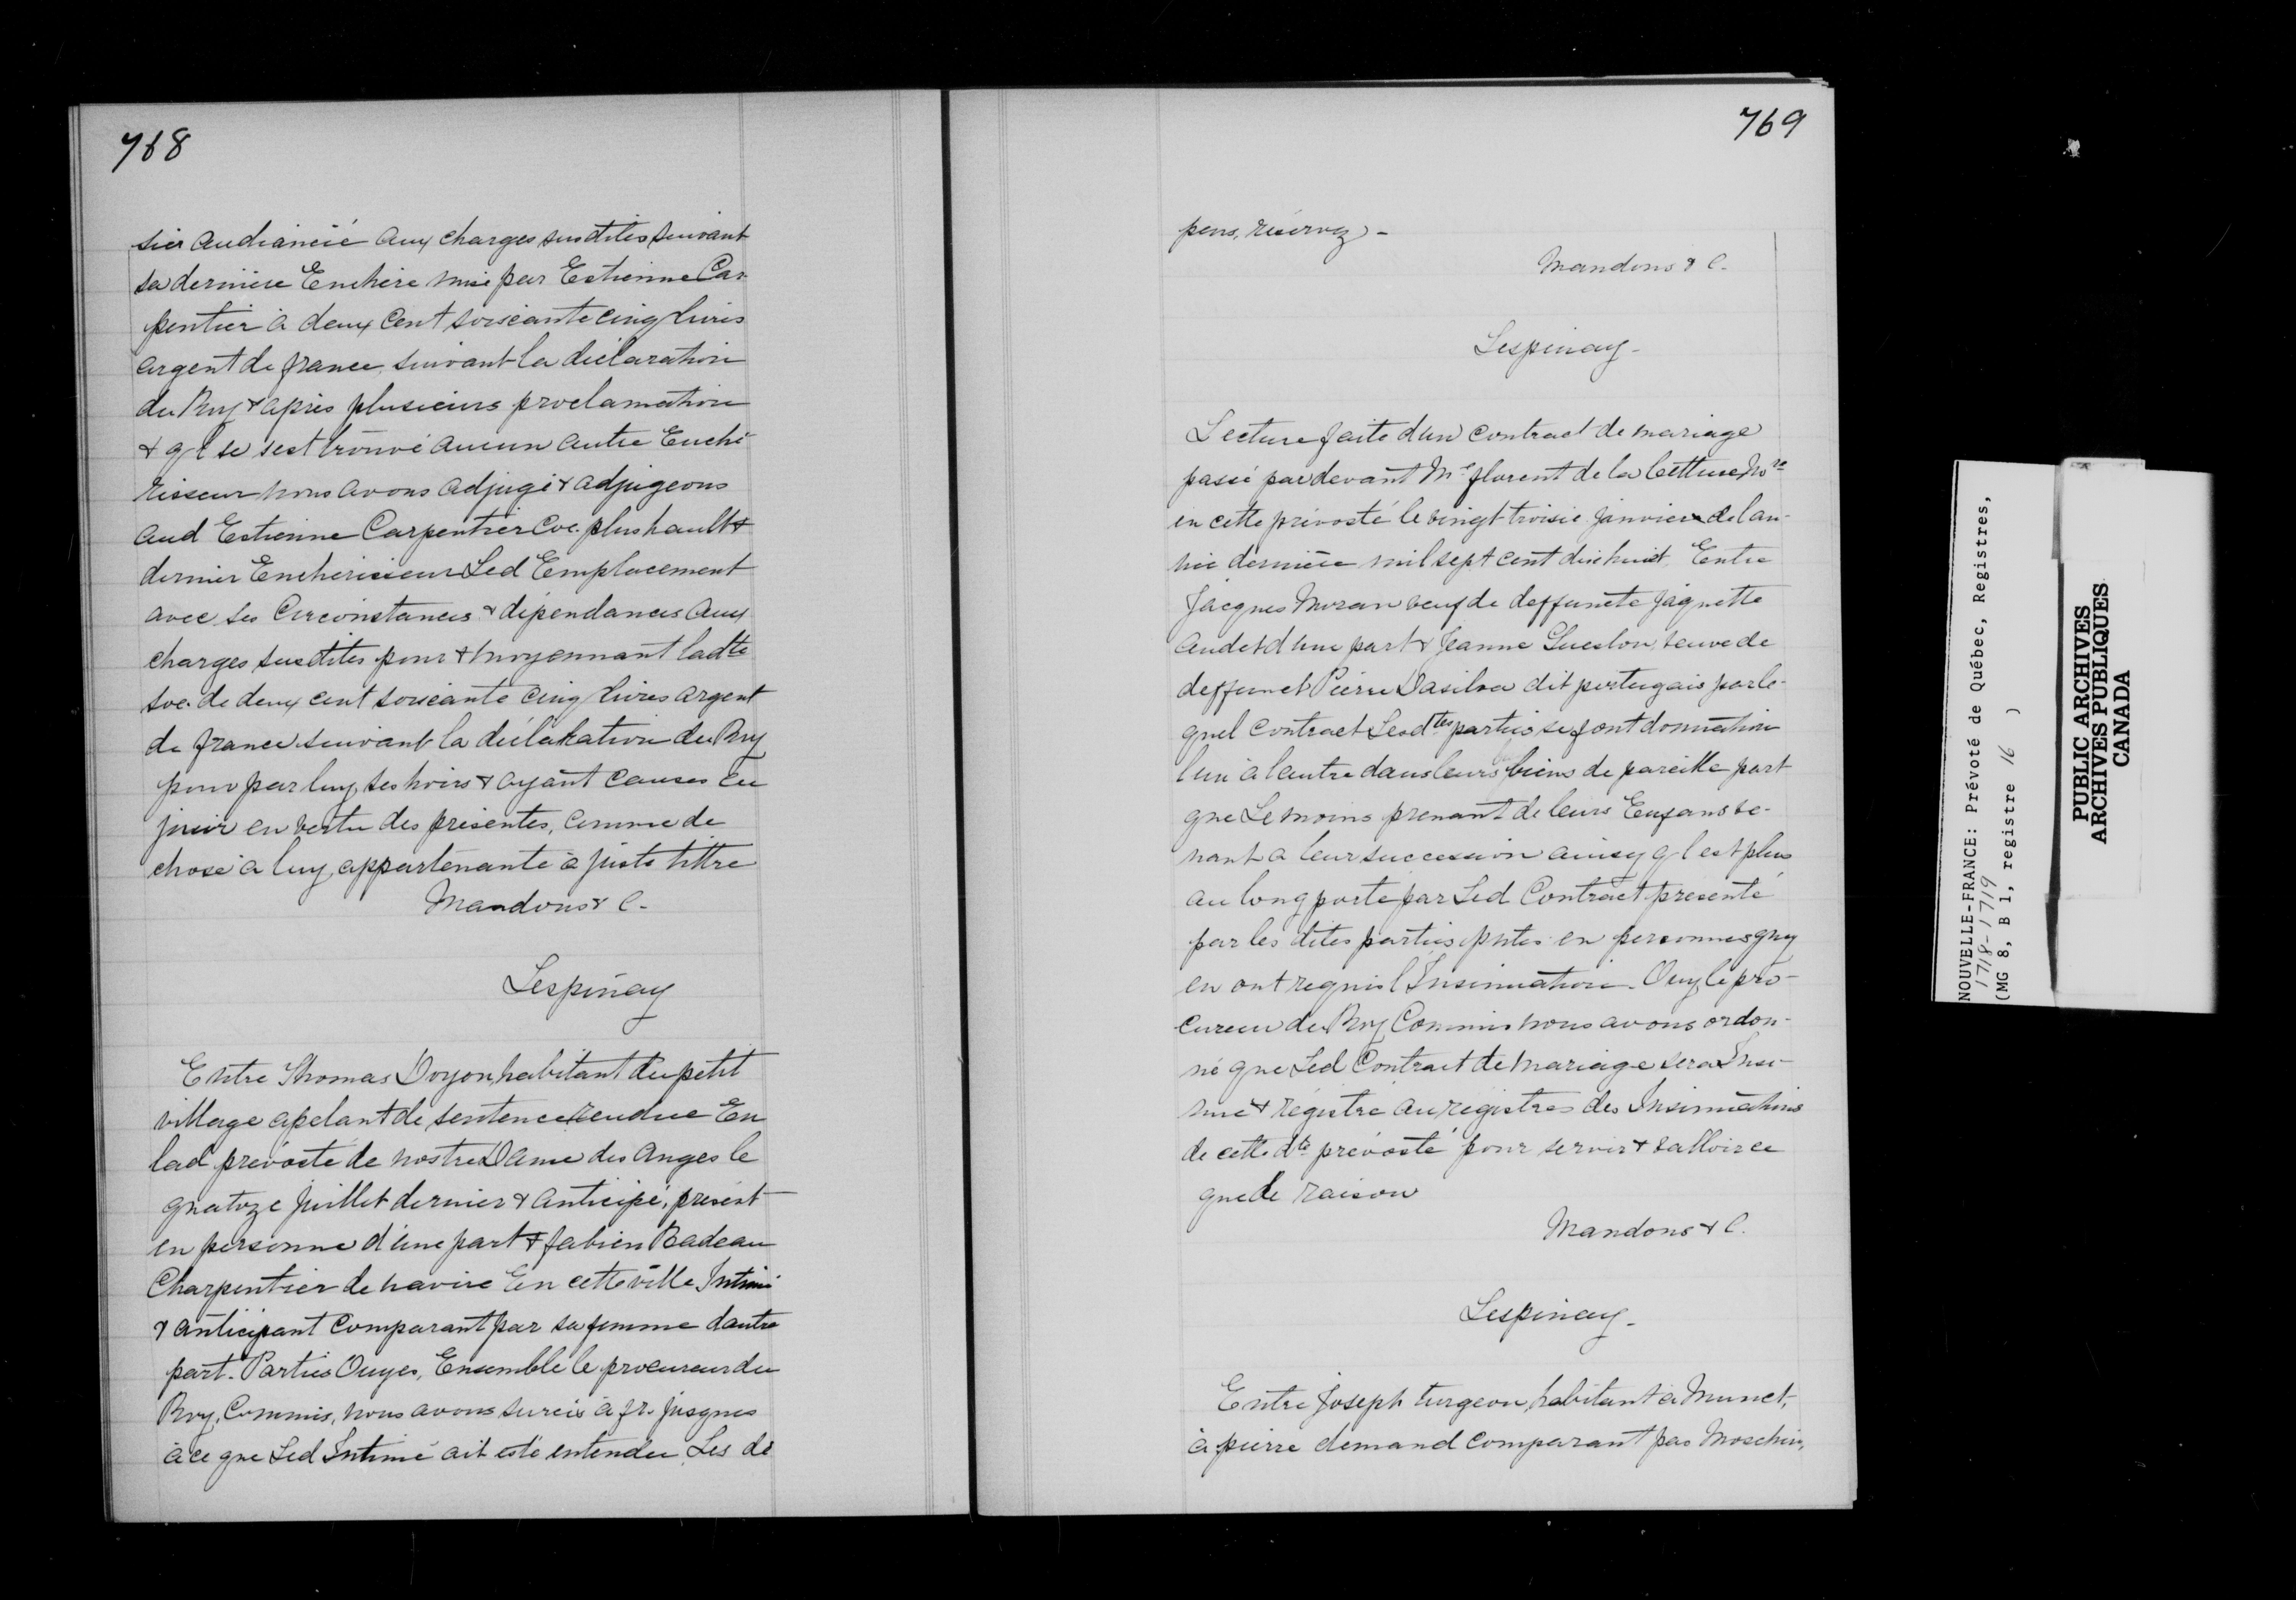 768
sier audiancié aux charges susdites suivant
sa derniere Enchere mise par Estienne Car-
pentier à deux cent soiscante cinq livres
argent de france, suivant la déclaration
du Roy & après plusieurs proclamation
& ql se sest trouvé aucun autre Enché-
risseur nous avons adjugé & adjugeons
aud Estienne Carpentier Coe. plus hault &
dernier Encherisseur Led Emplacement
avec ses Circonstances & dépendances aux
charges susdites pour & moyennant ladte
soe. de deux cent soiscante cinq livres argent
de france suivant la déclaration du Roy
pour par luy, ses hoirs & ayant causes en
jouir en vertu des présentes, comme de
chose à luy, appartenante à juste tittre
Mandons & C.
Lespinay
Entre Thomas Doyon, habitant du petit
village apelant de sentence rendue En
lad prévosté de nostre Dame des Anges le
quatoze juillet dernier & anticipé, présent
en personne d'une part & fabien Badeau
Charpentier de navire En cette ville Intimé
& anticipant comparant par sa femme dautre
part. Parties Ouyes, Ensemble le procureur du
Roy, Commis, nous avons surcis à fr. jusques
à ce que Led Intimé ait esté entendu, Les dé
769
pens, réservez -
Mandons & C.
Lespinay -
Lecture faite dun contract de mariage
passé pardevant Me florent de la Cettiere, No re
en cette prévosté le vingt troisie. janvier de lan-
née dernière mil sept cent dix huict, Entre
Jacques Moran veuf de deffuncte Jaquette
Audet d'une part & Jeanne Gueslon, veuve de
deffunct Pierre Dasilva dit portugais par le-
quel contract Lesd. tes parties se font donnation
lun à lautre dans leurs biens de pareille part
que Le moins prenant de leurs Enfans ve-
nant a leur succession ainsy ql est plus
au long porté par Led Contract présenté
par les dites parties pntes en personnes quy
en ont requis l'Insinuation. Ouy le pro-
cureur du Roy Commis nous avons ordon-
né que Led Contract de mariage sera Insi-
nué & régistré au registres des Insinuations
de cette dte prévosté pour servir & valloir ce
que de raison
Mandons & C.
Lespinay -
Entre Joseph turgeon, habitant à Munet,
à pierre demand comparant pas Moschin,
NOUVELLE-FRANCE: Prévoté de Québec, Registres,
1718-1719
(MG 8, B 1, registre 16 )
PUBLIC ARCHIVES
ARCHIVES PUBLIQUES
CANADA